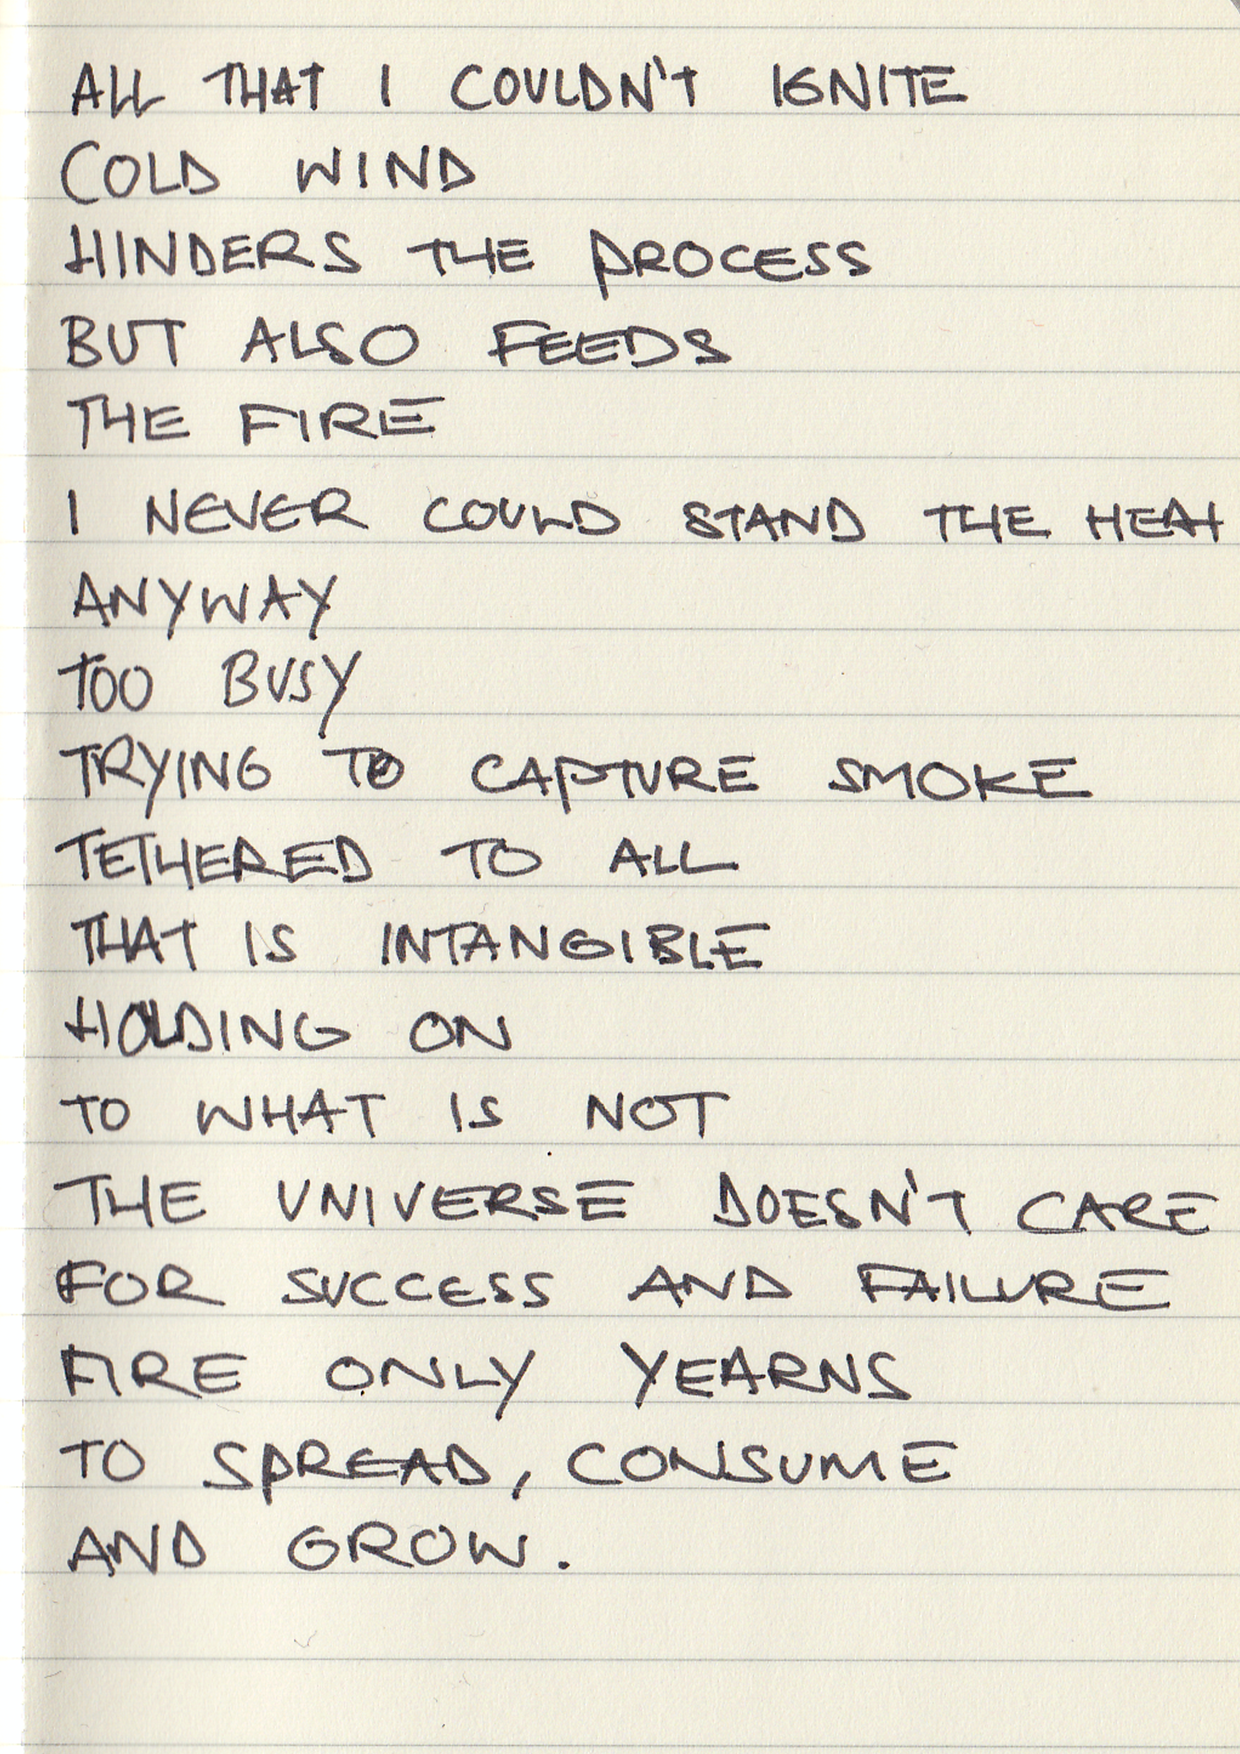 ALL THAT I COULDN'T IGNITE
COLD WIND
HINDERS THE PROCESS
BUT ALSO FEEDS
THE FIRE
I NEVER COULD STAND THE HEAT
ANYWAY
TOO BUSY
TRYING TO CAPTURE SMOKE
TETHERED TO ALL
THAT IS INTANGIBLE
HOLDING ON
TO WHAT IS NOT
THE UNIVERSE DOESN'T CARE
FOR SUCCESS AND FAILURE
FIRE ONLY YEARNS
TO SPREAD, CONSUME
AND GROW.